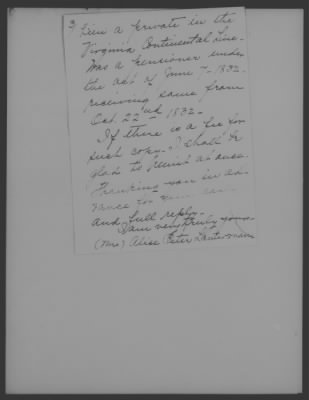 3
a private in the
Virginia Continental Line.
Was a pensioner under
the act of June 7 - 1832.
receiving same from
Oct. 22nd 1832.
If there is a fee for
such copy. I shall be
glad to remit at once.
Thanking you in ad-
vance for your
and full reply.
I am very truly yours
(Mrs) Alice Peter